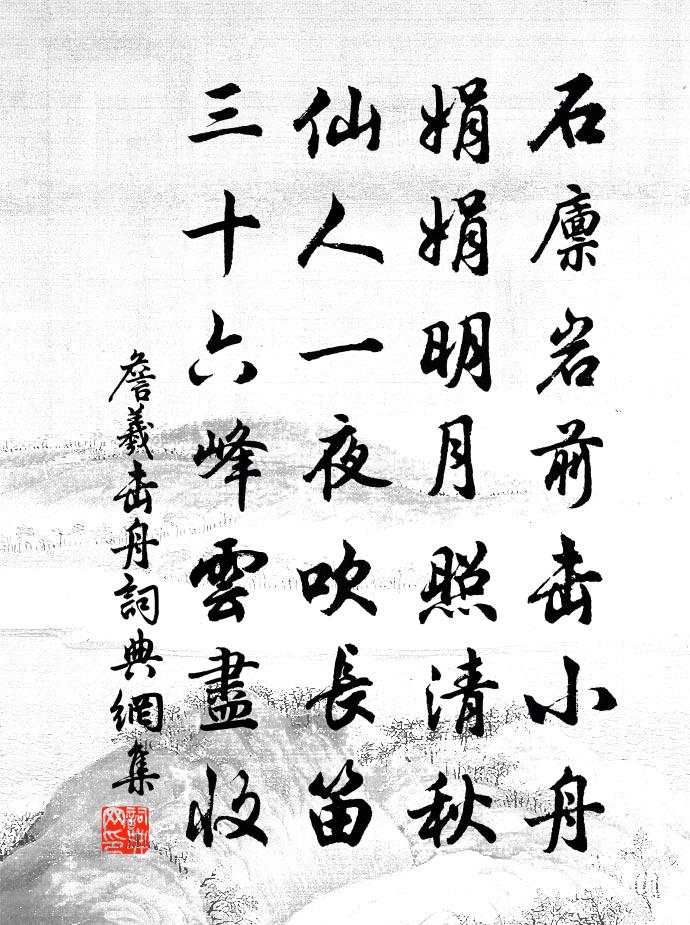 石廪岩前击小舟
娟娟明月照清秋
仙人一夜吹長笛
三十六峰雲盡收
詹羲击舟詞典網集
詞典网印